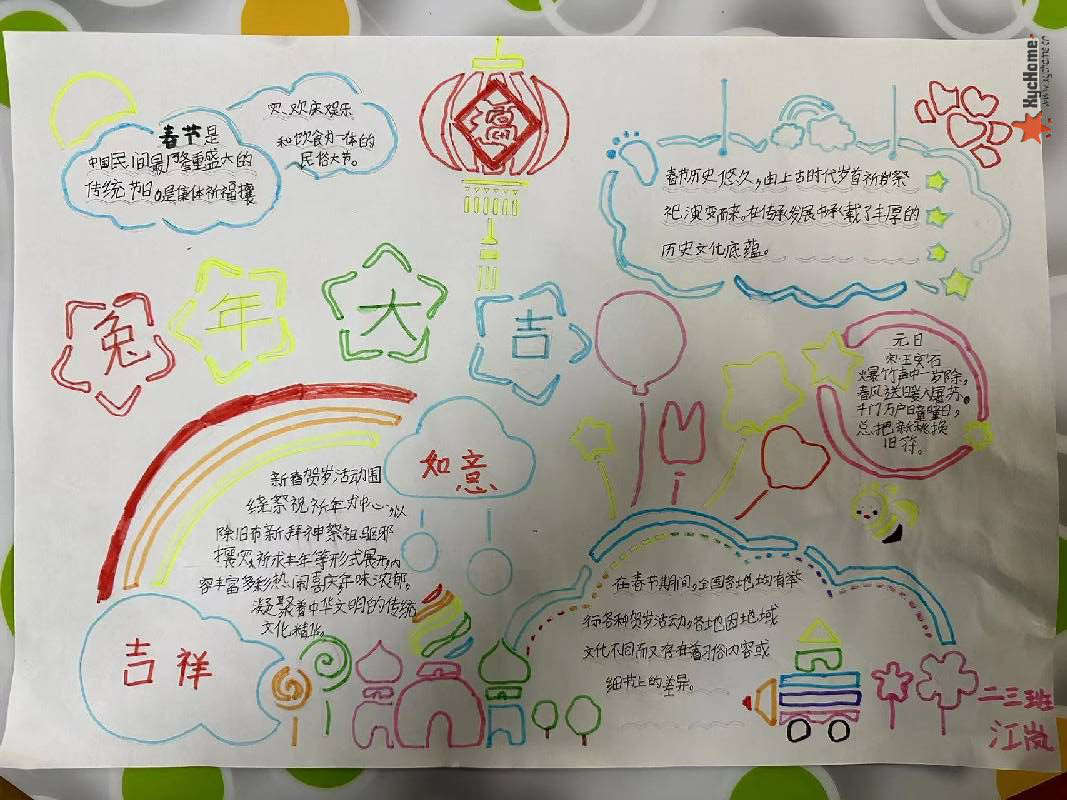 春节是
中国民间最严隆重盛大的
传统节日。是集体祈福攘
灾、欢庆娱乐
和饮食为一体的
民俗大节。
福
春节历史悠久,由上古时代岁首祈岁祭
祀演变而来。在传承发展中承载了丰厚的
历史文化底蕴。
兔年大吉
元日
宋:王安石
爆竹声中一岁除,
春风送暖入屠苏。
千门万户曈曈日,
总把新桃换
旧符。
如意
新春贺岁活动围
绕祭祝祈年为中心,以
除旧布新、拜神祭祖、驱邪
攘灾、祈求丰年等形式展开,内
容丰富多彩热闹喜庆年味浓郁,
凝聚着中华文明的传统
文化精华。
吉祥
在春节期间。全国各地均有举
行各种贺岁活动,各地因地域
文化不同而又存在着习俗内容或
细节上的差异。
二三班
江岚
KycHome